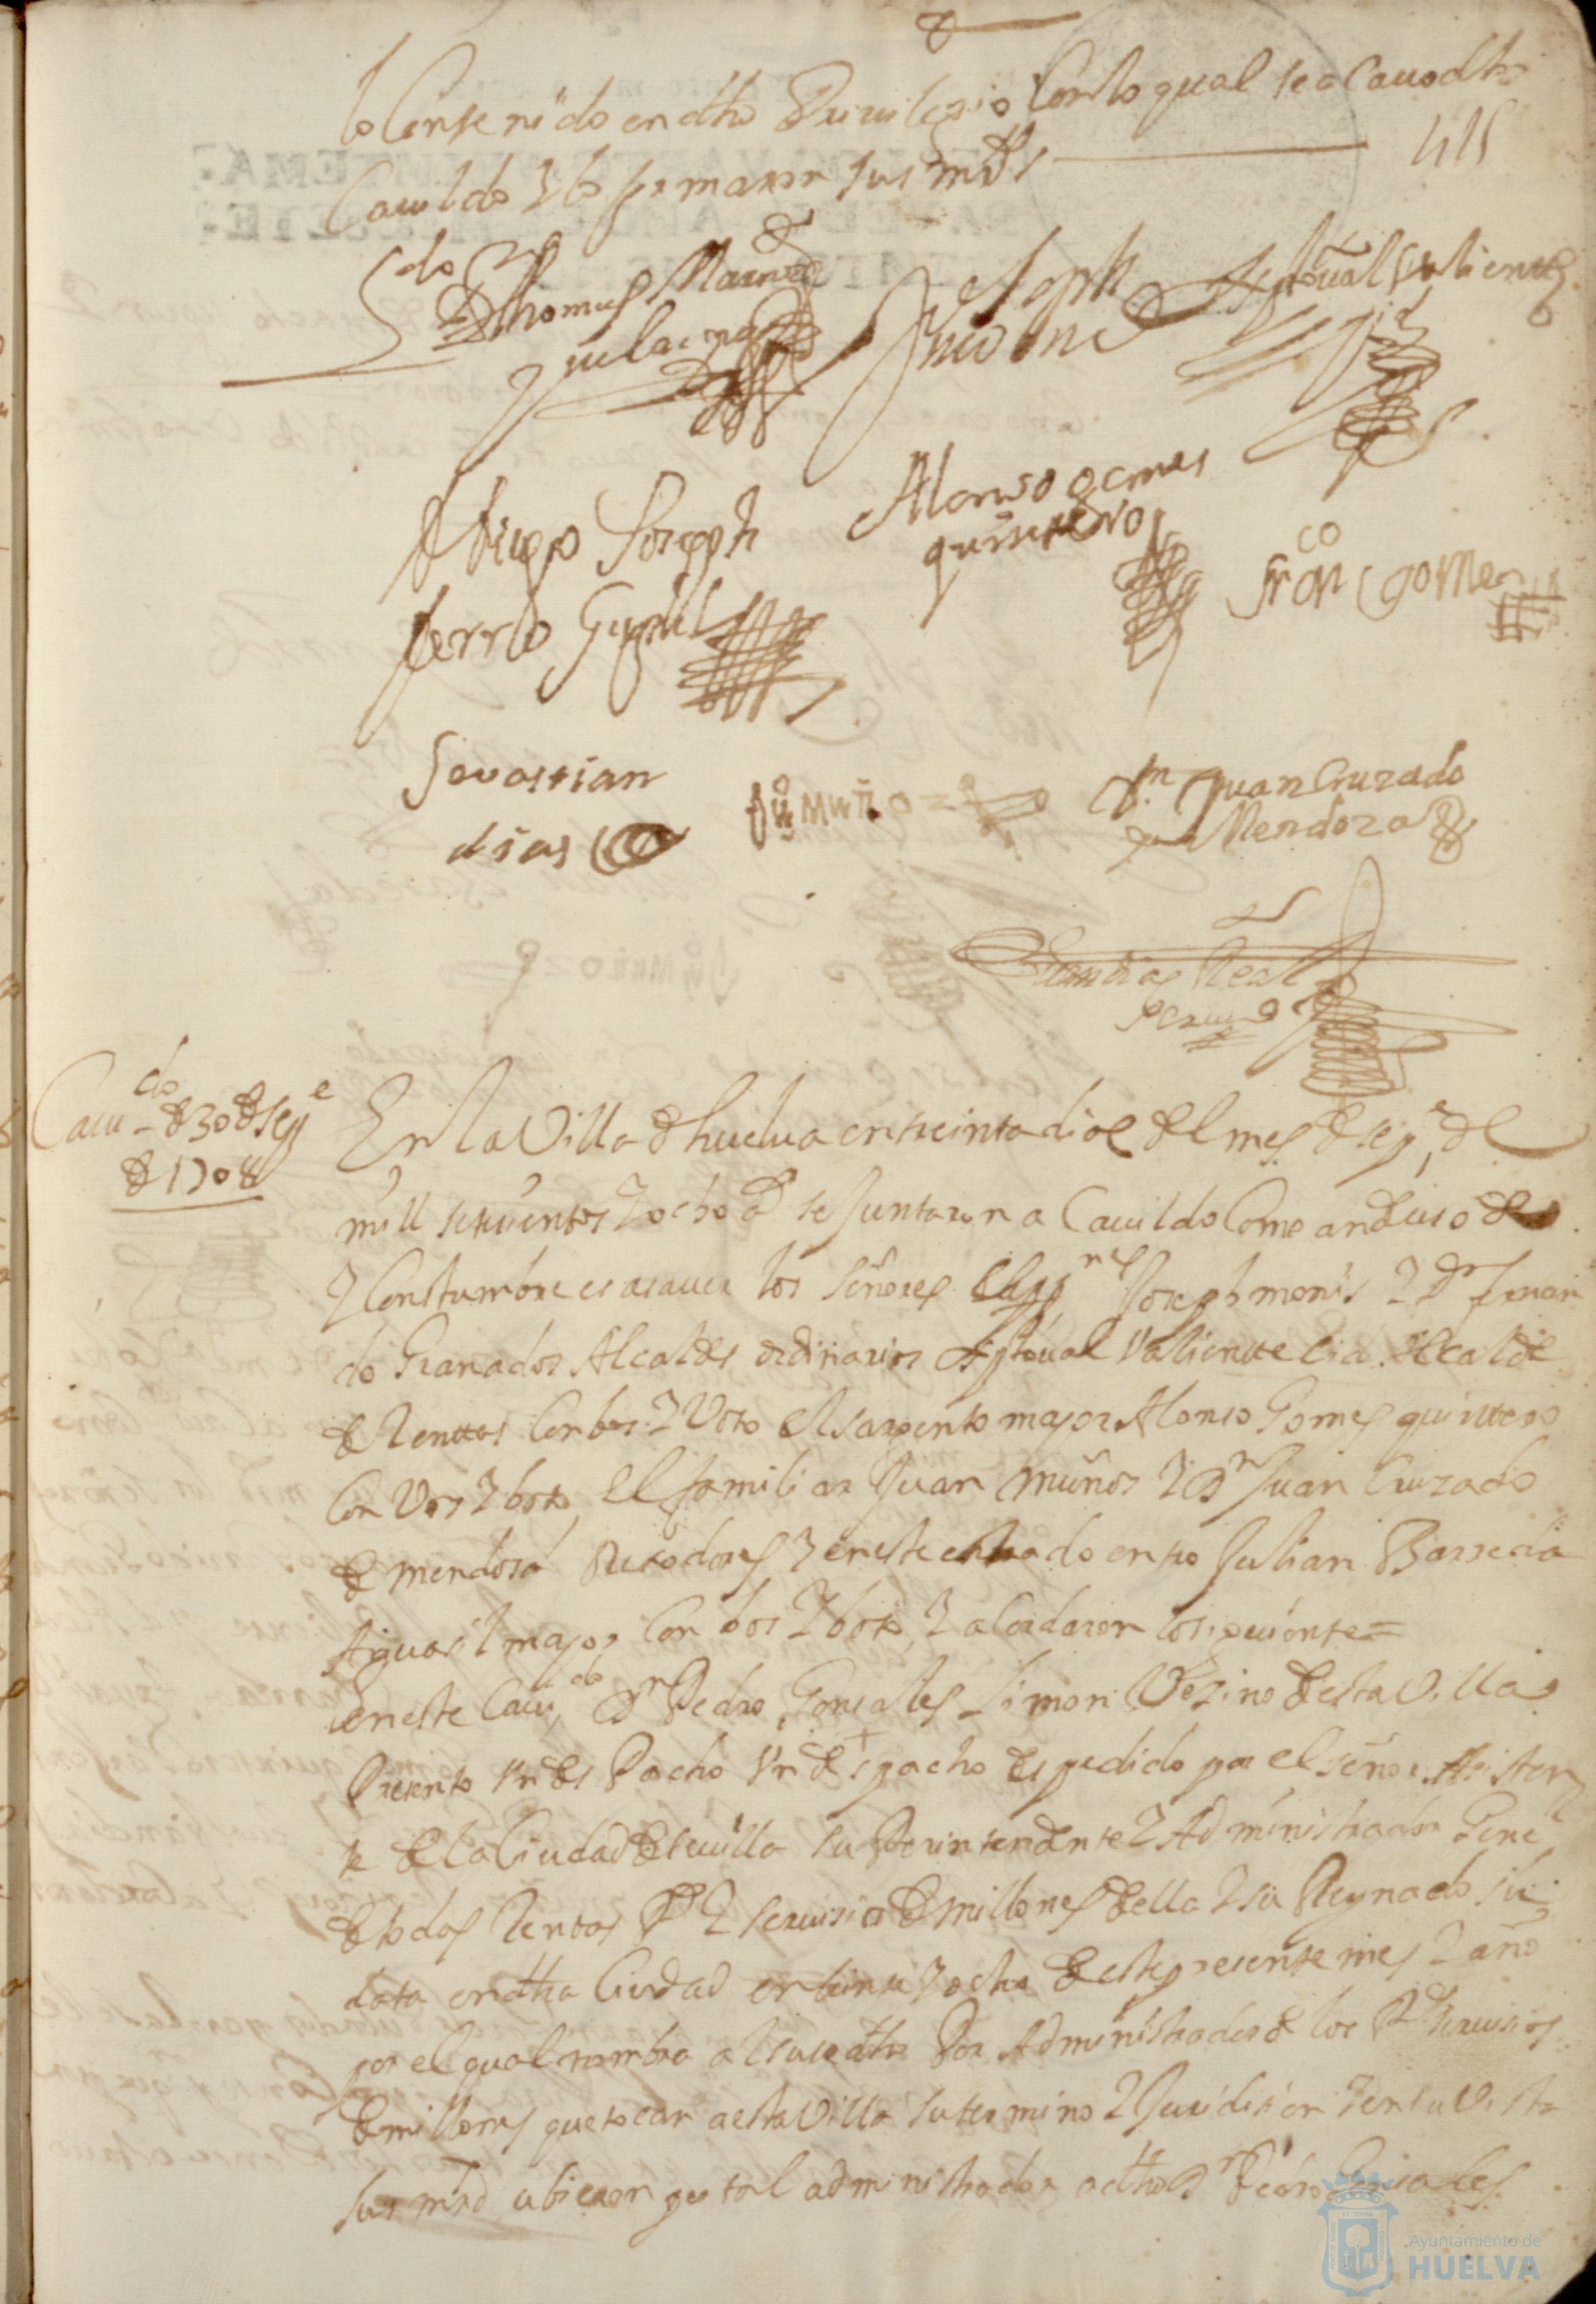 lo Contenido en dho Priuilegio Con lo qual se acauo dho
Cauildo y lo firmaron sus mds
415
Ldo Dn Thomas Martin
Joseph
Xptoual Valiente
Monis
Diego Joseph
Alonso gomes
quintero
Franco gomes
ferro
Sevastian
dias
Jun Muño
Dn Juan Cruzado
de Mendoza
Real
Cauido de 30 de sepe
de 1708
En la Villa de huelua en treinta dias del mes de sepe de
mill setesientos y ocho as se Juntaron a Cauildo Como an de uso
y Constumbre es asauer los señores Cappnes Joseph monis y Dn fernan
do Granados Alcaldes ordinarios Xptoual Valiente Cid Alcalde
de Rentas Con bos y Voto el sargento mayor Alonso Gomes quintero
Con Vos y boto el familiar Juan muños y Dn Juan Cruzado
de mendosa Rexidores y en este estado entro Julian Barreda
Aguasil mayor Con bos y boto y acordaron lo siguiente =
y en este Cauido Dn Pedro Gonsales Limon Vezino de esta Villa
Presento Vn des Pacho Vn despacho espedido por el señor Asisten
te de la Ciudad de seuilla superintendente y Administrador Gene
de todas Rentas Rs y seruisios de millones de ella y su Reynado su
data en dha Ciudad en beinte y ocho de este presente mes y año
por el qual nombra al susodho Por Administrador de los Rs seruisios
de millones que tocan a esta Villa su termino y Juridision y en su Vista
sus mrds ubieron por tal administrador a dho Dn Pedro Gonsales
Ayuntamiento de
HUELVA